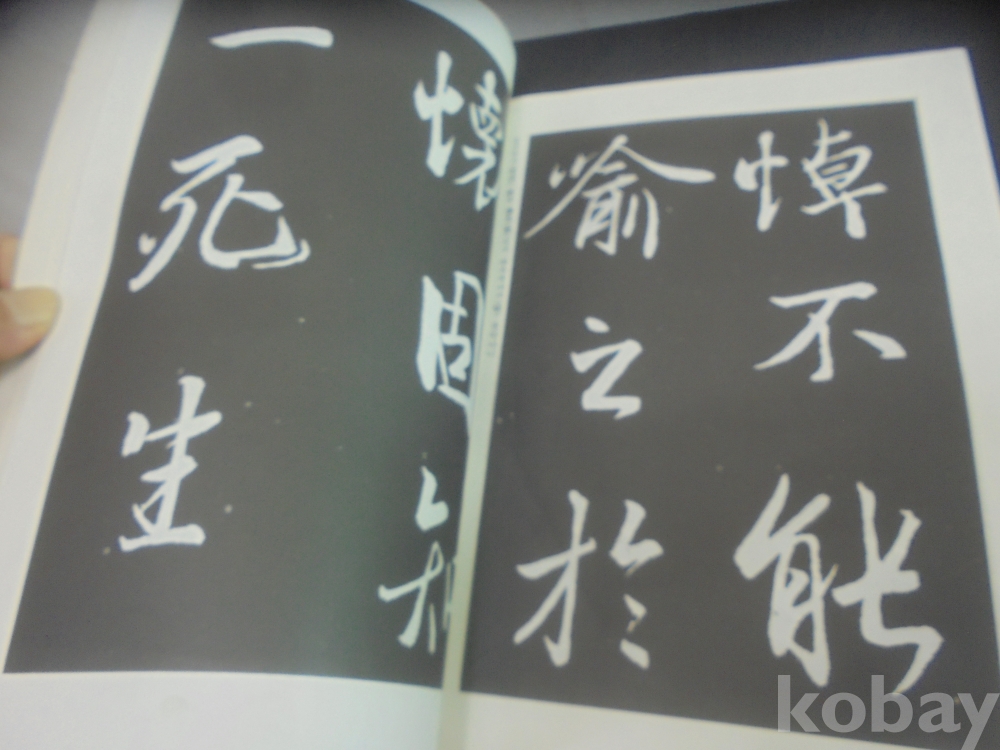 悼不能
喻之於
懷固知
一死生
kobay